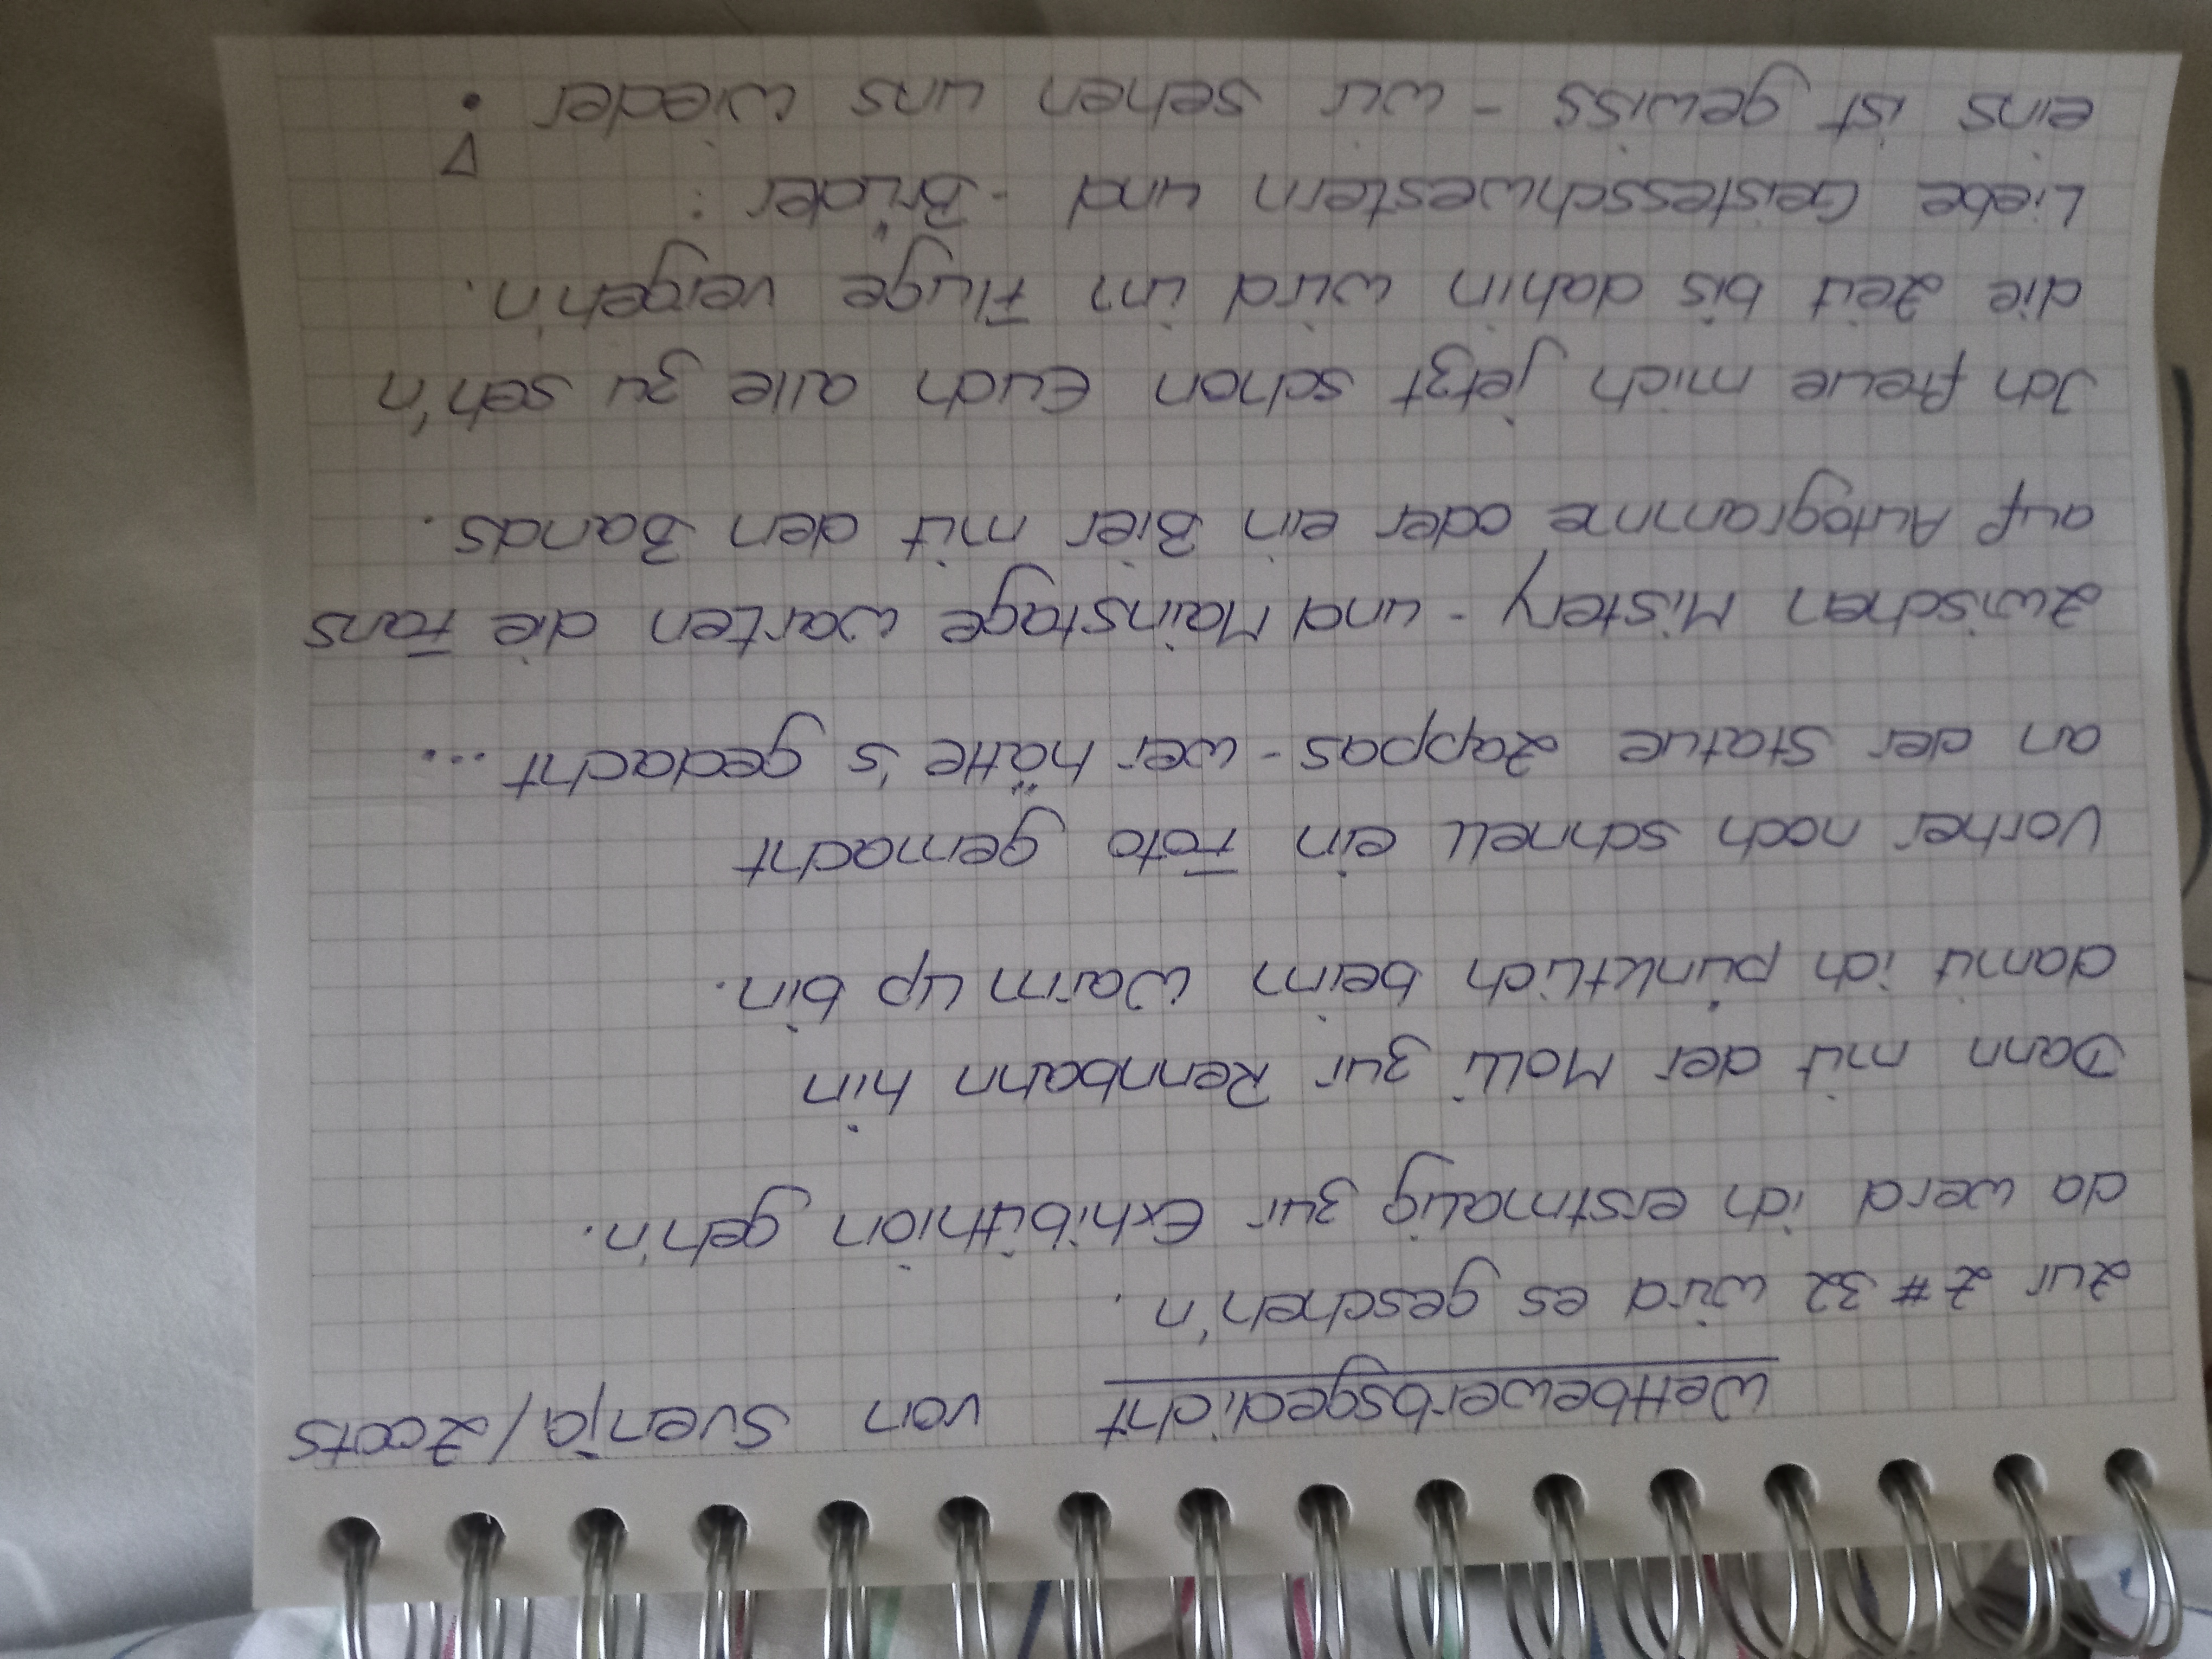 Wettbewerbsgedicht von Svenja/Zoots
Zur Z#32 wird es gescheh'n.
da werd ich erstmalig zur Exhibithion geh'n.
Dann mit der Molli zur Rennbahn hin
damit ich pünktlich beim Warm up bin.
Vorher noch schnell ein Foto gemacht
an der Statue Zappas - wer hätte's gedacht ...
Zwischen Mistery - und Mainstage warten die Fans
auf Autogramme oder ein Bier mit den Bands.
Ich freue mich jetzt schon Euch alle zu seh'n
die Zeit bis dahin wird im Fluge vergeh'n.
Liebe Geistesschwestern und - Brüder:
eins ist gewiss - wir sehen uns wieder!